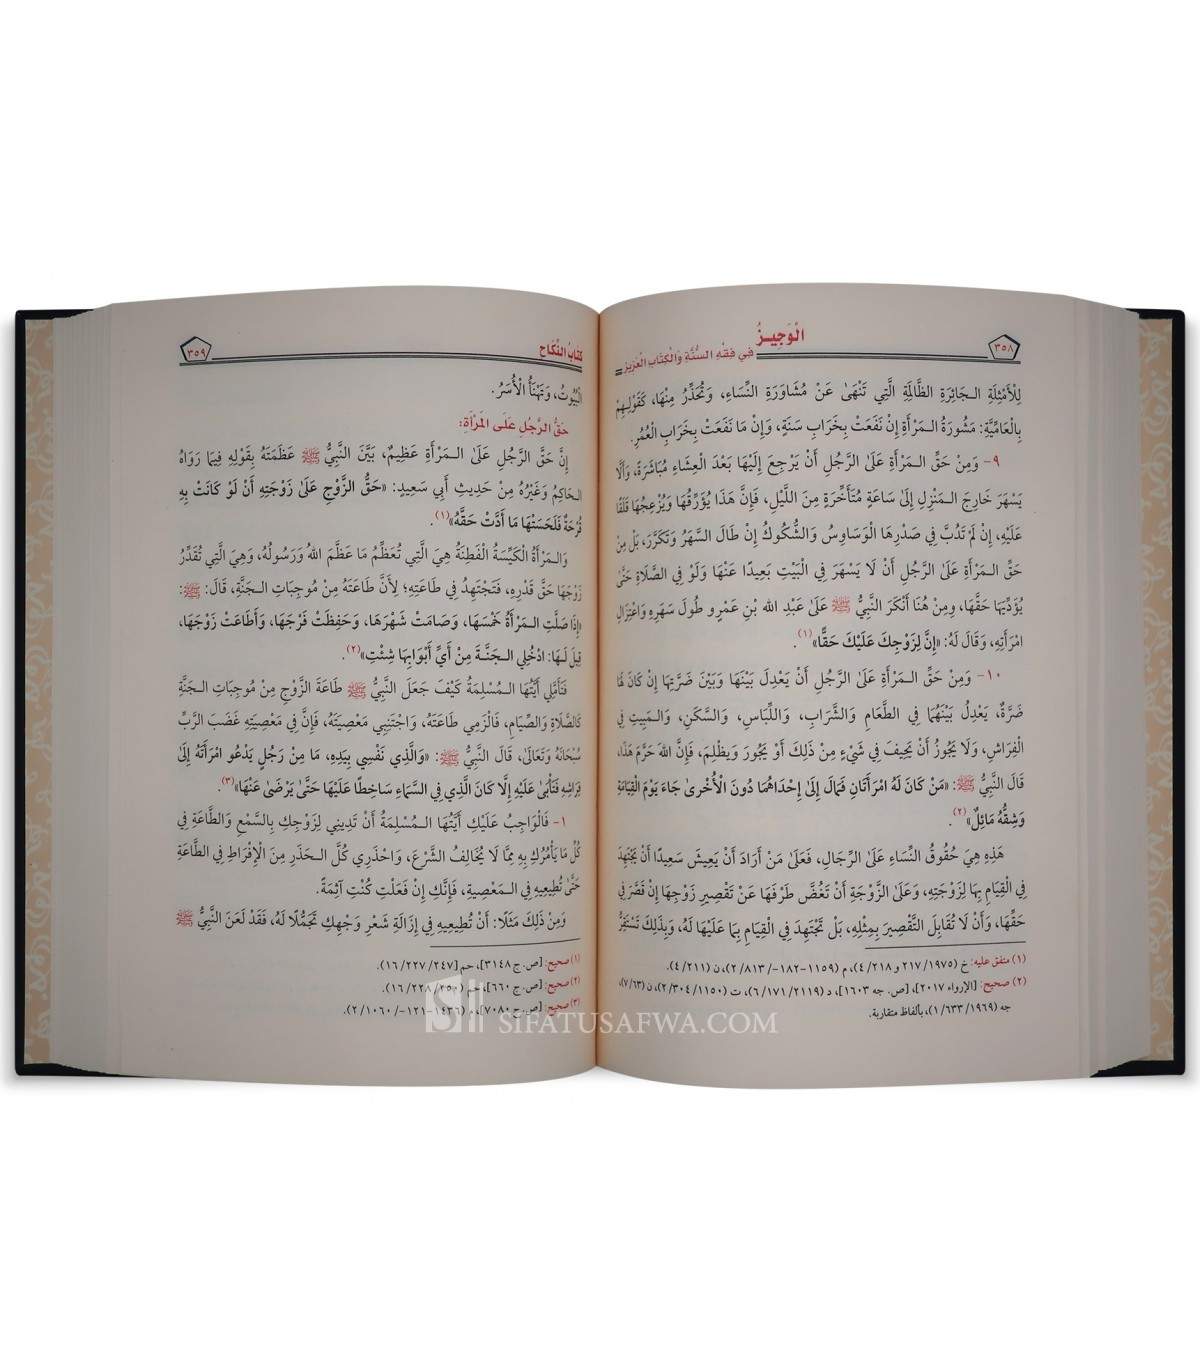 ٣٥٨
الْوَجِيـزُ
فِي فِقْهِ السُّنَّةِ وَالْكِتَابِ الْعَزِيزِ
لِلْأَمْثِلَةِ الـجَائِرَةِ الظَّالِمَةِ الَّتِي تَنْهَىٰ عَنْ مُشَاوَرَةِ النِّسَاءِ، وَتُحَذِّرُ مِنْهَا، كَقَوْلِهِمْ
بِالْعَامِّيَّةِ: مَشُورَةُ الـمَرْأَةِ إِنْ نَفَعَتْ بِخَرَابِ سَنَةٍ، وَإِنْ مَا نَفَعَتْ بِخَرَابِ الْعُمُرِ.
٩- وَمِنْ حَقِّ الـمَرْأَةِ عَلَىٰ الرَّجُلِ أَنْ يَرْجِعَ إِلَيْهَا بَعْدَ الْعِشَاءِ مُبَاشَرَةً، وَأَلَّا
يَسْهَرَ خَارِجَ الـمَنْزِلِ إِلَىٰ سَاعَةٍ مُتَأَخِّرَةٍ مِنَ اللَّيْلِ، فَإِنَّ هَذَا يُؤَرِّقُهَا وَيُزْعِجُهَا قَلَقًا
عَلَيْهِ، إِنْ لَمْ تَدُبَّ فِي صَدْرِهَا الْوَسَاوِسُ وَالشُّكُوكُ إِنْ طَالَ السَّهَرُ وَتَكَرَّرَ، بَلْ مِنْ
حَقِّ الـمَرْأَةِ عَلَىٰ الرَّجُلِ أَنْ لَا يَسْهَرَ فِي الْبَيْتِ بَعِيدًا عَنْهَا وَلَوْ فِي الصَّلَاةِ حَتَّىٰ
يُؤَدِّيَهَا حَقَّهَا، وَمِنْ هُنَا أَنْكَرَ النَّبِيُّ ﷺ عَلَىٰ عَبْدِ اللهِ بْنِ عَمْرٍو طُولَ سَهَرِهِ وَاعْتِزَالِ
امْرَأَتِهِ، وَقَالَ لَهُ: «إِنَّ لِزَوْجِكَ عَلَيْكَ حَقًّا»(١).
١٠- وَمِنْ حَقِّ الـمَرْأَةِ عَلَىٰ الرَّجُلِ أَنْ يَعْدِلَ بَيْنَهَا وَبَيْنَ ضَرَّتِهَا إِنْ كَانَ لَهَا
ضَرَّةٌ، يَعْدِلُ بَيْنَهُمَا فِي الطَّعَامِ وَالشَّرَابِ، وَاللِّبَاسِ، وَالسَّكَنِ، وَالـمَبِيتِ فِي
الْفِرَاشِ، وَلَا يَجُوزُ أَنْ يَحِيفَ فِي شَيْءٍ مِنْ ذَلِكَ أَوْ يَجُورَ وَيَظْلِمَ، فَإِنَّ اللهَ حَرَّمَ هَذَا،
قَالَ النَّبِيُّ ﷺ: «مَنْ كَانَ لَهُ امْرَأَتَانِ فَمَالَ إِلَىٰ إِحْدَاهُمَا دُونَ الْأُخْرَىٰ جَاءَ يَوْمَ الْقِيَامَةِ
وَشِقُّهُ مَائِلٌ»(٢).
هَذِهِ هِيَ حُقُوقُ النِّسَاءِ عَلَىٰ الرِّجَالِ، فَعَلَىٰ مَنْ أَرَادَ أَنْ يَعِيشَ سَعِيدًا أَنْ يَجْتَهِدَ
فِي الْقِيَامِ بِهَا لِزَوْجَتِهِ، وَعَلَىٰ الزَّوْجَةِ أَنْ تَغُضَّ طَرْفَهَا عَنْ تَقْصِيرِ زَوْجِهَا إِنْ قَصَّرَ فِي
حَقِّهَا، وَأَنْ لَا تُقَابِلَ التَّقْصِيرَ بِمِثْلِهِ، بَلْ تَجْتَهِدَ فِي الْقِيَامِ بِمَا عَلَيْهَا لَهُ، وَبِذَلِكَ تَسْتَقِرُّ
(١) متفق عليه: خ (١٩٧٥/ ٢١٧ و ٢١٨/ ٤)، م (١١٥٩-١٨٢-/ ٨١٣/ ٢)، ن (٢١١/ ٤).
(٢) صحيح: [الإرواء ٢٠١٧]، [ص. جه ١٦٠٣]، د (٢١١٩/ ١٧١/ ٦)، ت (١١٥٠/ ٣٠٤/ ٢)، ن (٦٣/ ٧)،
جه (١٩٦٩/ ٦٣٣/ ١)، بألفاظ متقاربة.
كِتَابُ النِّكَاحِ
٣٥٩
الْبُيُوتُ، وَتَهْنَأُ الْأُسَرُ.
حَقُّ الرَّجُلِ عَلَى المَرْأَةِ:
إِنَّ حَقَّ الرَّجُلِ عَلَىٰ الـمَرْأَةِ عَظِيمٌ، بَيَّنَ النَّبِيُّ ﷺ عَظَمَتَهُ بِقَوْلِهِ فِيمَا رَوَاهُ
الـحَاكِمُ وَغَيْرُهُ مِنْ حَدِيثِ أَبِي سَعِيدٍ: «حَقُّ الزَّوْجِ عَلَىٰ زَوْجَتِهِ أَنْ لَوْ كَانَتْ بِهِ
قُرْحَةٌ فَلَحَسَتْهَا مَا أَدَّتْ حَقَّهُ»(١).
وَالـمَرْأَةُ الْكَيِّسَةُ الْفَطِنَةُ هِيَ الَّتِي تُعَظِّمُ مَا عَظَّمَ اللهُ وَرَسُولُهُ، وَهِيَ الَّتِي تُقَدِّرُ
زَوْجَهَا حَقَّ قَدْرِهِ، فَتَجْتَهِدُ فِي طَاعَتِهِ؛ لِأَنَّ طَاعَتَهُ مِنْ مُوجِبَاتِ الـجَنَّةِ، قَالَ: ﷺ:
«إِذَا صَلَّتِ الـمَرْأَةُ خَمْسَهَا، وَصَامَتْ شَهْرَهَا، وَحَفِظَتْ فَرْجَهَا، وَأَطَاعَتْ زَوْجَهَا،
قِيلَ لَـهَا: ادْخُلِي الـجَنَّـةَ مِنْ أَيِّ أَبْوَابِهَا شِئْتِ»(٢).
فَتَأَمَّلِي أَيَّتُهَا الـمُسْلِمَةُ كَيْفَ جَعَلَ النَّبِيُّ ﷺ طَاعَةَ الزَّوْجِ مِنْ مُوجِبَاتِ الـجَنَّةِ
كَالصَّلَاةِ وَالصِّيَامِ، فَالْزَمِي طَاعَتَهُ، وَاجْتَنِبِي مَعْصِيَتَهُ، فَإِنَّ فِي مَعْصِيَتِهِ غَضَبَ الرَّبِّ
سُبْحَانَهُ وَتَعَالَىٰ، قَالَ النَّبِيُّ ﷺ: «وَالَّذِي نَفْسِي بِيَدِهِ، مَا مِنْ رَجُلٍ يَدْعُو امْرَأَتَهُ إِلَىٰ
فِرَاشِهِ فَتَأْبَىٰ عَلَيْهِ إِلَّا كَانَ الَّذِي فِي السَّمَاءِ سَاخِطًا عَلَيْهَا حَتَّىٰ يَرْضَىٰ عَنْهَا»(٣).
١- فَالْوَاجِبُ عَلَيْكِ أَيَّتُهَا الـمُسْلِمَةُ أَنْ تَدِينِي لِزَوْجِكِ بِالسَّمْعِ وَالطَّاعَةِ فِي
كُلِّ مَا يَأْمُرُكِ بِهِ مِمَّا لَا يُخَالِفُ الشَّرْعَ، وَاحْذَرِي كُلَّ الـحَذَرِ مِنَ الْإِفْرَاطِ فِي الطَّاعَةِ
حَتَّىٰ تُطِيعِيهِ فِي الـمَعْصِيَةِ، فَإِنَّكِ إِنْ فَعَلْتِ كُنْتِ آثِمَةً.
وَمِنْ ذَلِكَ مَثَلًا: أَنْ تُطِيعِيهِ فِي إِزَالَةِ شَعْرِ وَجْهِكِ تَجَمُّلًا لَهُ، فَقَدْ لَعَنَ النَّبِيُّ ﷺ
(١) صحيح: [ص. ج ٣١٤٨]، حم [٢٤٧/ ٢٢٧/ ١٦).
(٢) صحيح: [ص. ج ٦٦٠]، حم (٢٥٠/ ٢٢٨/ ١٦).
(٣) صحيح: [ص. ج ٧٠٨٠]، م (١٤٣٦-١٢١-/ ١٠٦٠/ ٢).
SIFATUSAFWA.COM